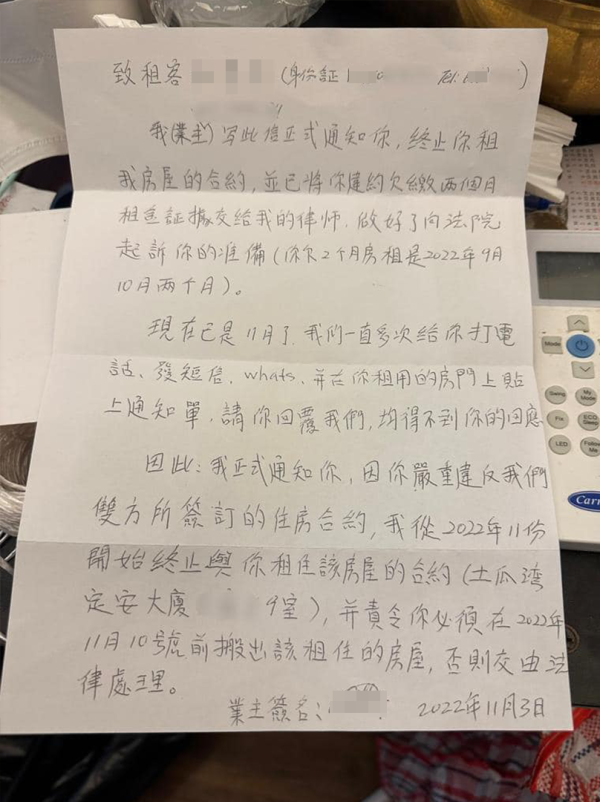 致租客 (身份証 Tel: )
我(業主)写此信正式通知你，終止你租
我房屋的合約，並已將你違約欠繳兩個月
租金証據交給我的律师．做好了向法院
起訴你的准備(你欠2个月房租是2022年9月
10月两个月)。
現在已是11月了．我们一直多次給你打電
話、發短信、whats、并在你租用的房門上貼
上通知單．請你回覆我們，均得不到你的回應
因此：我正式通知你，因你嚴重違反我們
雙方所簽訂的住房合約，我從2022年11份
開始終止與你租住該房屋的合約(土瓜湾
定安大廈 9室)，并責令你必須在2022年
11月10號前搬出該租住的房屋，否則交由法
律處理。
業主簽名： 2022年11月3日
Mode
Swing
Fix
ECO
LED
Follow Me
Carri